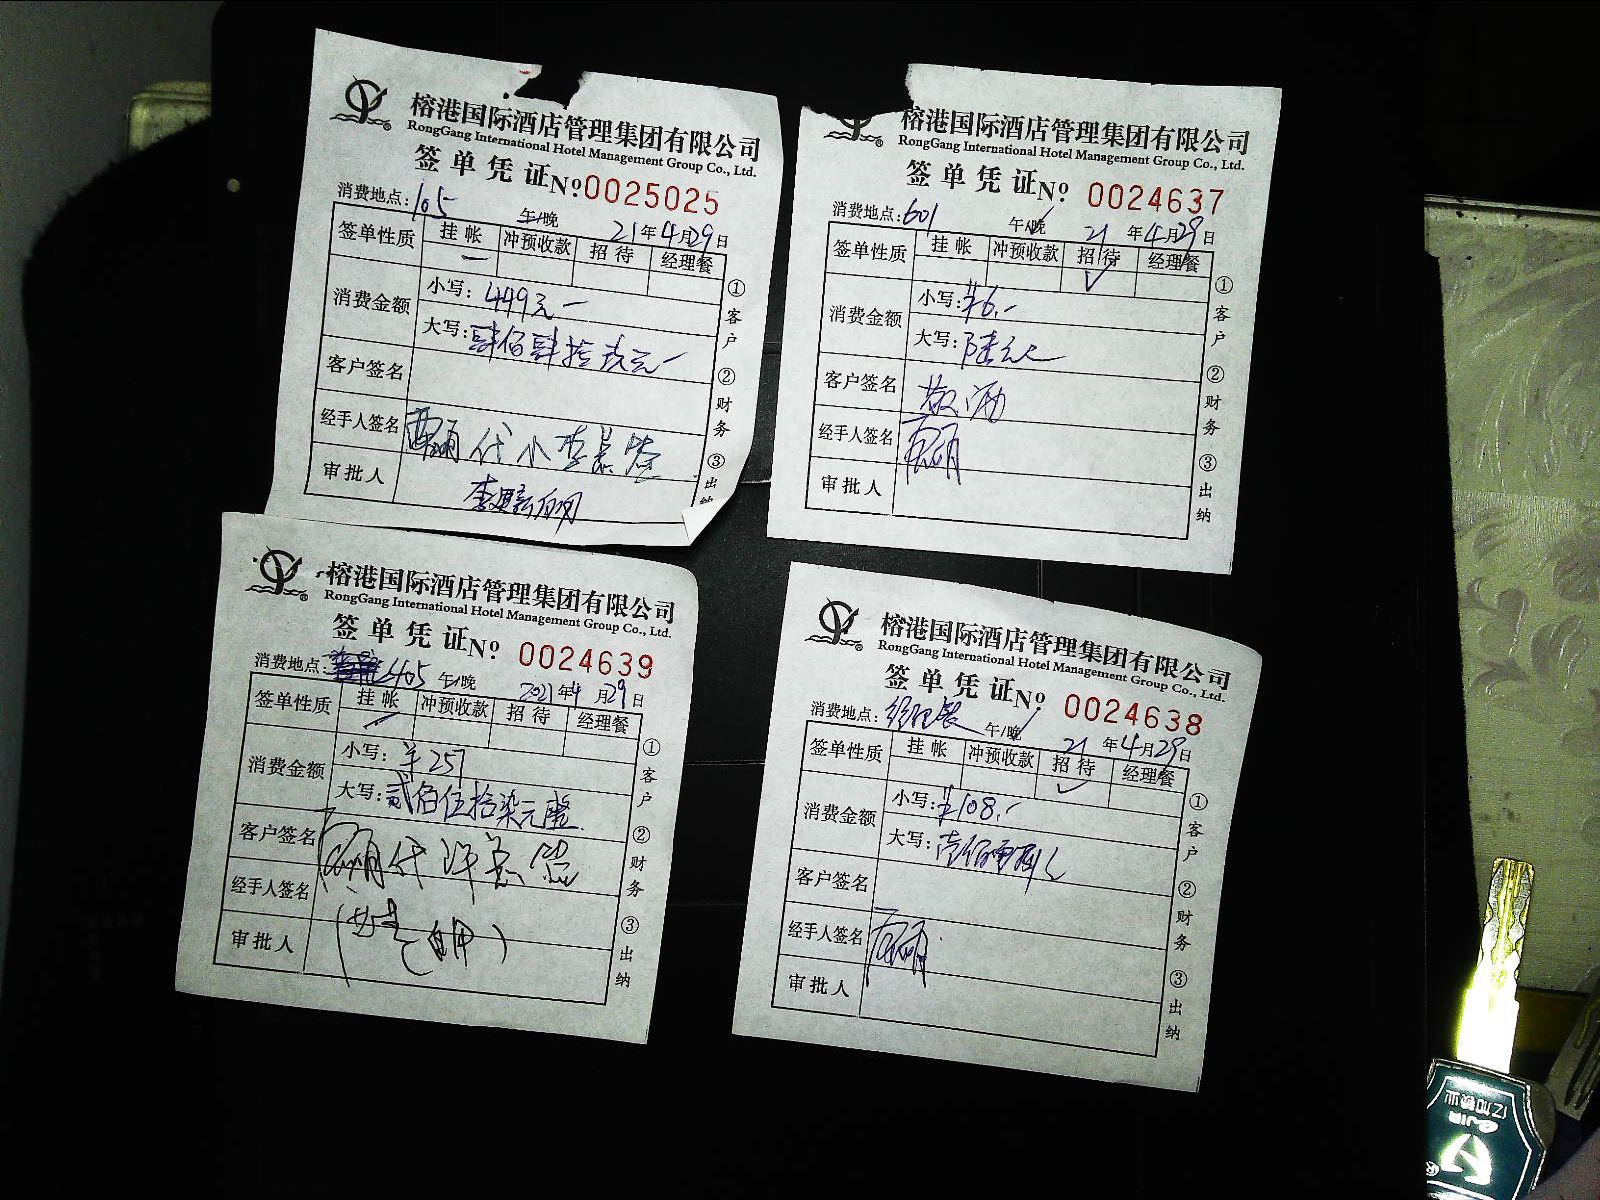 榕港国际酒店管理集团有限公司
RongGang International Hotel Management Group Co., Ltd.
签单凭证 №0025025
消费地点:105 午/晚 21年4月29日
签单性质 挂帐 冲预收款 招待 经理餐
消费金额 小写:449元
大写:肆佰肆拾玖元
客户签名
经手人签名 代小李总签
审批人
①客户 ②财务 ③出纳
榕港国际酒店管理集团有限公司
RongGang International Hotel Management Group Co., Ltd.
签单凭证 №0024637
消费地点:601 午/晚 21年4月29日
签单性质 挂帐 冲预收款 招待 经理餐
✓
消费金额 小写:¥6.-
大写:陆元
客户签名
经手人签名
审批人
①客户 ②财务 ③出纳
榕港国际酒店管理集团有限公司
RongGang International Hotel Management Group Co., Ltd.
签单凭证 №0024639
消费地点: 午/晚 2021年4月29日
签单性质 挂帐 冲预收款 招待 经理餐
消费金额 小写:¥257
大写:贰佰伍拾柒元整
客户签名 代许总签
经手人签名
审批人
①客户 ②财务 ③出纳
榕港国际酒店管理集团有限公司
RongGang International Hotel Management Group Co., Ltd.
签单凭证 №0024638
消费地点:经理餐 午/晚 21年4月29日
签单性质 挂帐 冲预收款 招待 经理餐
✓
消费金额 小写:¥108.-
大写:壹佰零捌
客户签名
经手人签名
审批人
①客户 ②财务 ③出纳